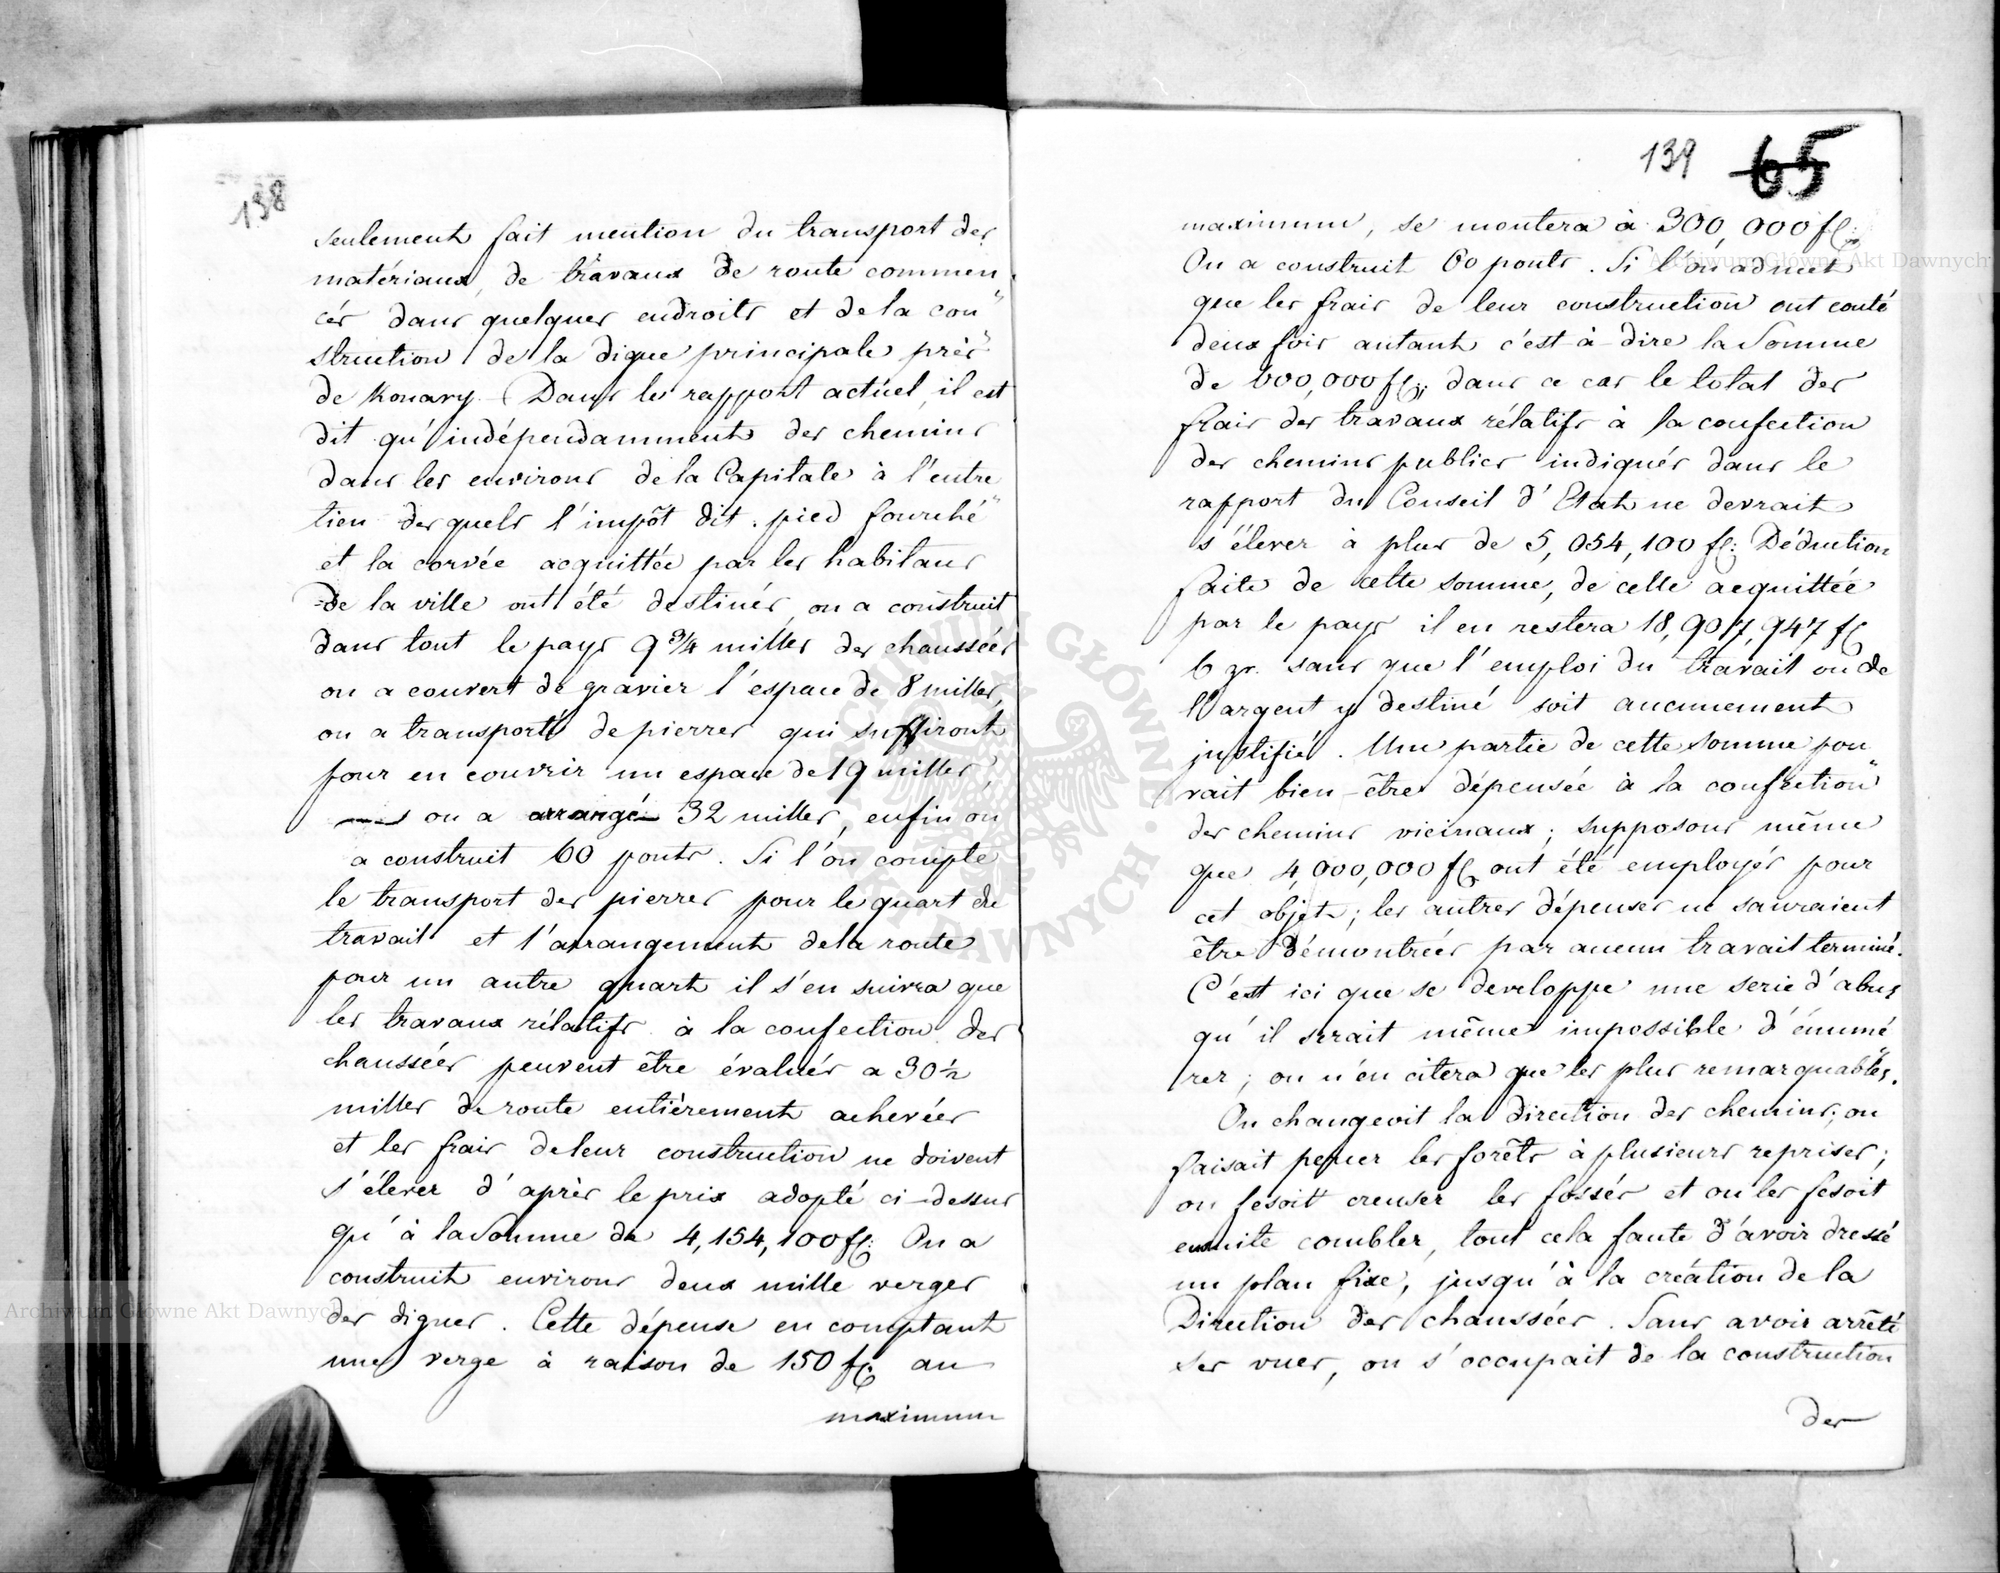 138
seulement fait mention du transport des
matériaux, de travaux de route commen
cés dans quelques endroits et de la con"
struction de la digue principale près"
de Konary. Dans le rapport actuel, il est
dit qu'indépendamment des chemins
dans les environs de la Capitale à l'entre
tien des quels l'impôt dit. pied fourché"
et la corvée acquittée par les habitans
de la ville ont été destinés, on a construit
dans tout le pays 9 3/4 milles des chaussées
on a couvert de gravier l'espace de 8 milles,
on a transporté de pierres qui suffiront
pour en couvrir un espace de 19 milles,
on a arrangé 32 milles, enfin on
a construit 60 ponts. Si l'on compte
le transport des pierres pour le quart du
travail et l'arrangement de la route
pour un autre quart il s'en suivra que
les travaux rélatifs à la confection des
chaussées peuvent être évalués a 30 1/2
milles de route entièrement achevées
et les frais de leur construction ne doivent
s'élever d'après le prix adopté ci-dessus
qu'à la Somme de 4,154,100 fl: On a
construit environs deux mille verges
des digues. Cette dépense en comptant
une verge à raison de 150 fl. au
maximum
139 65
maximum, se montera à 300,000 fl:
On a construit 60 ponts. Si l'on admet
que les frais de leur construction ont couté
deux fois autant c'est-à-dire la Somme
de 600,000 fl; dans ce cas le total des
frais des travaux rélatifs à la confection
des chemins publics indiqués dans le
rapport du Conseil d'Etat ne devrait
s'élever à plus de 5,054,100 fl: Déduction
faite de cette somme, de celle acquittée
par le pays il en restera 18,907,947 fl
6 gr. sans que l'emploi du travail ou de
l'argent y destiné soit aucunement
justifié. Une partie de cette somme pou
rait bien-être dépensée à la confection"
des chemins vicinaux; supposons même
que 4,000,000 fl ont été employés pour
cet objet; les autres dépenses ne sauraient
être démontrées par aucun travail terminé.
C'est ici que se developpe une serie d'abus
qu'il serait même impossible d'énumé
rer; on n'en citera que les plus remarquables.
On changeoit la direction des chemins; on
faisait percer les forêts à plusieurs reprises;
on fesoit creuser les fossés et on les fesoit
ensuite combler, tout cela faute d'avoir dressé
un plan fixe, jusqu'à la création de la
Direction des chaussées. Sans avoir arrêté
ses vues, on s'occupait de la construction
des
Archiwum Główne Akt Dawnych
Archiwum Główne Akt Dawnych
ARCHIWUM GŁÓWNE AKT DAWNYCH